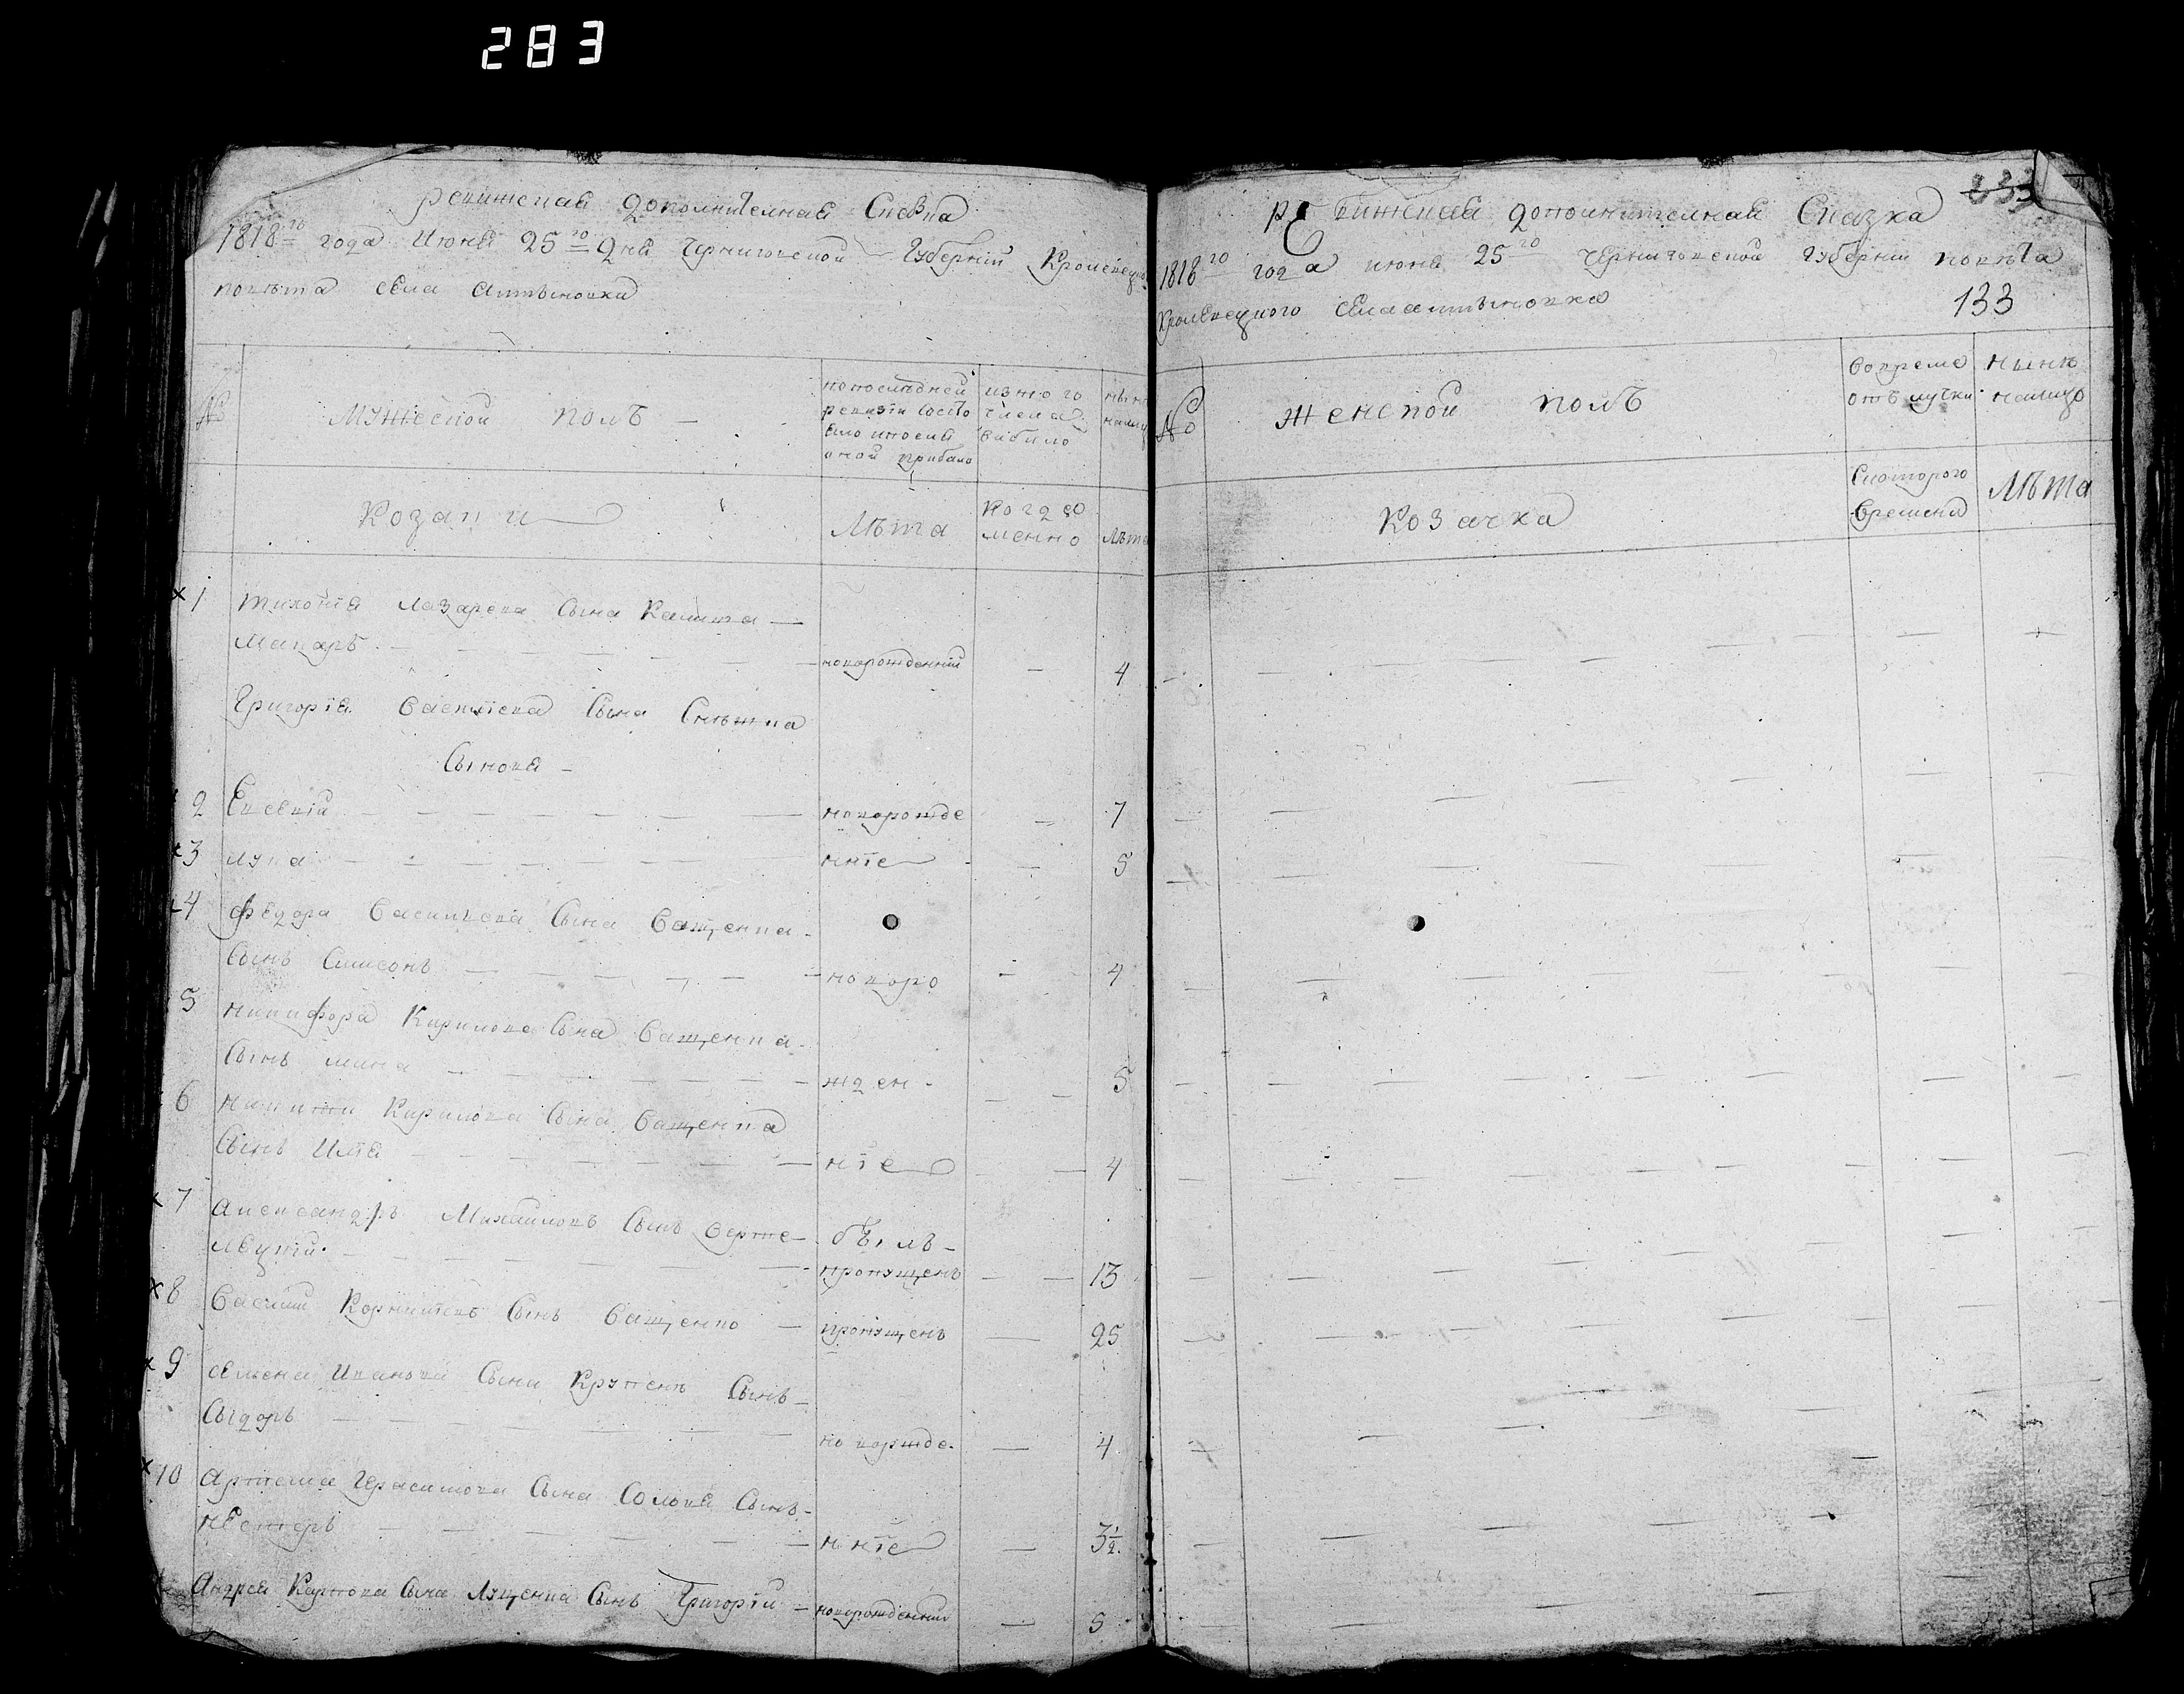 283
ревижская дополнителная Сказка
1818го года Июня 25го дня Черниговской Губернии Кролевецкого
повѣта села Алтыновки
№
Мужеской полъ
по последней
ревизїи состо
яло и после
оной прибыло
из него
числа
выбыло
нынѣ
налицо
Козаки
Лѣта
когда
менно
Лѣта
1 Тихона Лазарева Сына Калита
Макаръ новорожденний 4
Григорїя Василїева Сына
Сыновя
2 Евсевїй новорожде 7
3 лука ннїе 5
4 Федора Василïева Сына Ващенка
Сынъ Симеонъ новоро 4
5 Никифора Кирилова Сына Ващенка
Сынъ мина жден 5
6 Никити Кирилова Сына Ващенка
Сынъ Илїя нїе 4
7 Александръ Михайловъ Сынъ Верте
лецкїй былъ
пропущенъ 13
8 Василий Корнилїевъ Сынъ Ващенко пропущенъ 25
9 Семена Иванова Сына Сынъ
Сыдоръ новоржде 4
10 Артема Герасимова Сына Соловя Сынъ
Нестеръ ннїе 3½
Андрея Карпова Сына Луценка Сынъ Григорїй новорожденний 5
333
ревижская дополнителная Сказка
1818го года июня 25го Черниговской Губернии повѣта
Кролевецкого Села Алтыновка
133
№
женской полъ
вовреме
отълучки
нынѣ
налицо
Козачка
Скоторого
времени
Лѣта